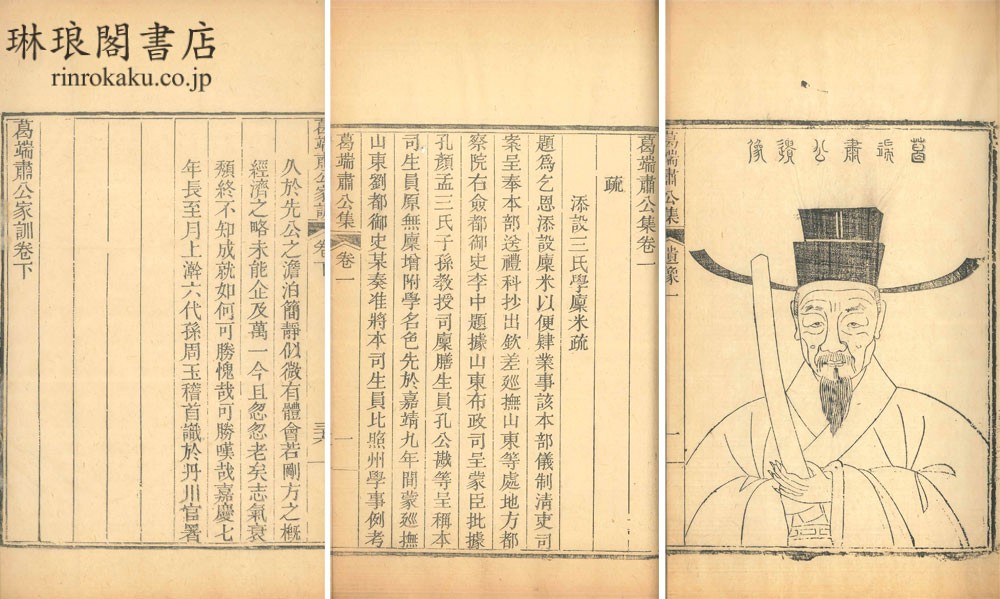 琳琅閣書店
rinrokaku.co.jp
葛端肅公遺像
葛端肅公集 遺像 一
葛端肅公集卷一
疏
添設三氏學廩米疏
題爲乞恩添設廩米以便肄業事該本部儀制清吏司
案呈奉本部送禮科抄出欽差廵撫山東等處地方都
察院右僉都御史李中題據山東布政司呈蒙臣批據
孔顏孟三氏子孫教授司廩膳生員孔公勘等呈稱本
司生員原無廩增附學名色先於嘉靖九年間蒙廵撫
山東劉都御史某奏准將本司生員比照州學事例考
葛端肅公集 卷一 一
葛端肅公家訓 卷下
久於先公之澹泊簡靜似微有體會若剛方之概
經濟之略未能企及萬一今且忽忽老矣志氣衰
頽終不知成就如何可勝愧哉可勝嘆哉嘉慶七
年長至月上澣六代孫周玉稽首識於丹川官署
葛端肅公家訓卷下